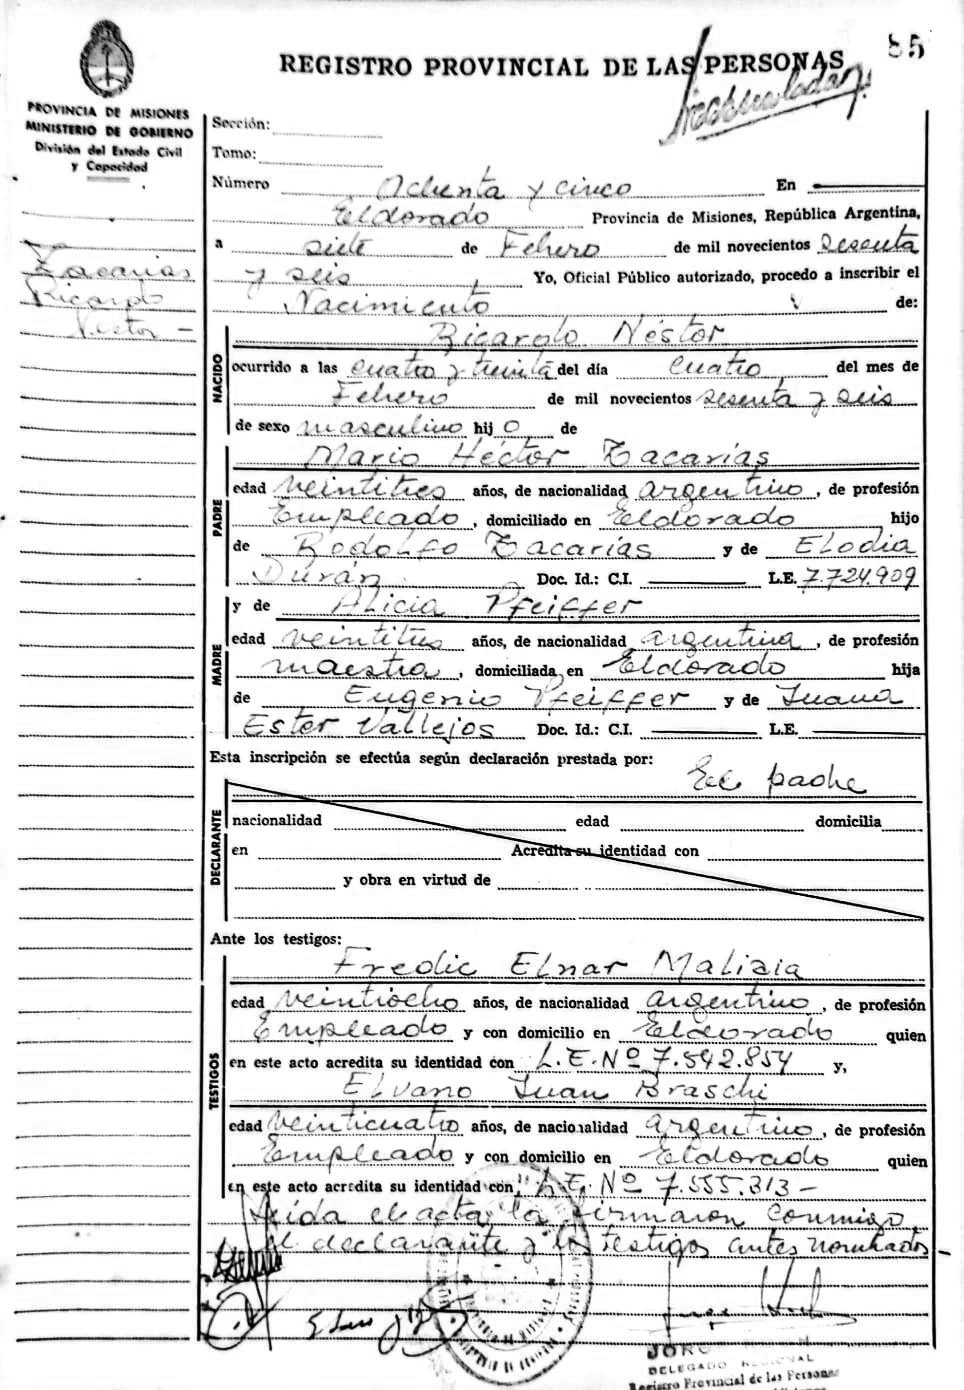 85
REGISTRO PROVINCIAL DE LAS PERSONAS
PROVINCIA DE MISIONES
MINISTERIO DE GOBIERNO
División del Estado Civil
y Capacidad
Zacarias
Ricardo
Nestor -
Sección:
Tomo:
Número Ochenta y cinco En
Eldorado Provincia de Misiones, República Argentina,
a siete de Febrero de mil novecientos sesenta
y seis Yo, Oficial Público autorizado, procedo a inscribir el
Nacimiento de:
NACIDO
Ricardo Néstor
ocurrido a las cuatro y treinta del día cuatro del mes de
Febrero de mil novecientos sesenta y seis
de sexo masculino hijo de
PADRE
Mario Héctor Zacarías
edad veintitres años, de nacionalidad argentino, de profesión
Empleado, domiciliado en Eldorado hijo
de Rodolfo Zacarías y de Elodia
Durán Doc. Id.: C.I. L.E. 7.724.909
MADRE
y de Alicia Pfeiffer
edad veintitres años, de nacionalidad argentina, de profesión
maestra, domiciliada en Eldorado hija
de Eugenio Pfeiffer y de Juana
Ester Vallejos Doc. Id.: C.I. L.E.
Esta inscripción se efectúa según declaración prestada por:
El padre
DECLARANTE
nacionalidad edad domicilia
en Acredita su identidad con
y obra en virtud de
Ante los testigos:
TESTIGOS
Fredic Elnar Malizia
edad veintiocho años, de nacionalidad argentino, de profesión
Empleado y con domicilio en Eldorado quien
en este acto acredita su identidad con L.E. Nº 7.542.854 y,
Elvano Juan Braschi
edad veinticuatro años, de nacionalidad argentino, de profesión
Empleado y con domicilio en Eldorado quien
en este acto acredita su identidad con L.E. Nº 7.555.313-
Leída el acta la firmaron conmigo,
el declarante y los testigos antes nombrados-
JORG
DELEGADO REGIONAL
Registro Provincial de las Personas